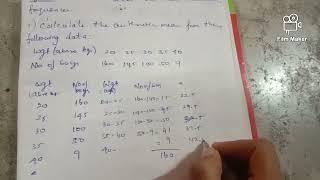 frequencies.
1) Calculate the arithmetic mean from the
following data
Wgt (above kg) 20 25 30 35 40
No of boys 160 145 100 50 9
Wgt No of boys Wgt No of boys
20 160 20-25 160-145=15 22.5
25 145 25-30 145-100=45 27.5
30 100 30-35 100-50=50
35 50 35-40 50-9=41 37.5
40 9 40- =9
160
Film Maker